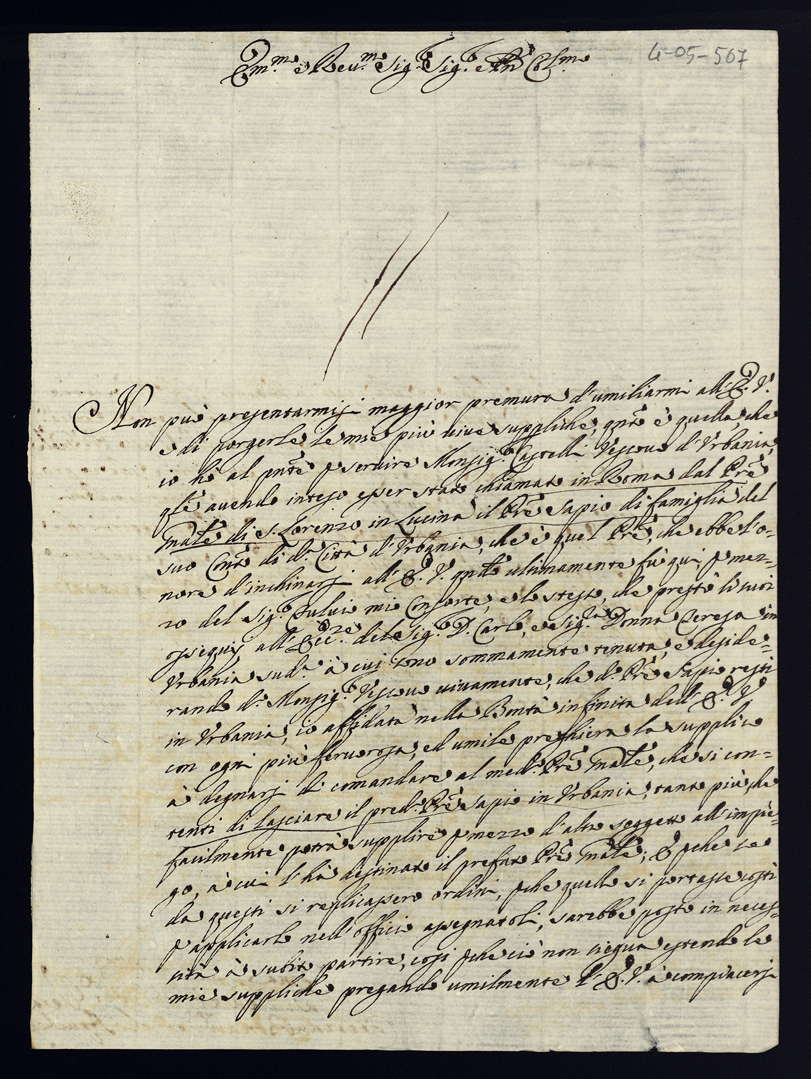 4-05-567
Em.mo e Reu.mo Sig.r Sig.r e Pñ Col.mo
Non può presentarmisi maggior premura d'umiliarmi all'E. V.
e di porgerle le mie più viue suppliche, qnto è quella, che
io hò al pñte p seruire Monsig.r Castelli Vescouo d'Vrbania,
qle auendo inteso esser stato chiamato in Roma dal Prẽ
Mãle di S. Lorenzo in Lucina il Prẽ Sapio di famiglia del
suo Conto di d.a Città d'Vrbania, che è quel Prẽ, che ebbe l'o-
nore d'inchinarsi all'E. V. qndo ultimamente fù qui p mez-
zo del Sig.r Fuluio mio Consorte, e lo stesso, che prestò li suoi
ossequij all'Ecc.ze del Sig.r D. Carlo, e Sig.ra Donna Teresa in
Vrbania sud.a à cui sono sommamente tenuta, e deside-
rando d.o Monsig.r Vescouo viuamente, che d.o Prẽ Sapio resti
in Vrbania, io affidata nella Bontà infinita dell'E. V.
con ogni più feruorosa, ed umile preghiera la supplico
à degnarsi di comandare al med.o Prẽ Mãle, che si con-
tenti di lasciare il pred.o Prẽ Sapio in Vrbania, tanto più che
facilmente potrà supplire p mezzo d'altro soggetto all'impie-
go, à cui l'hà destinato il prefato Prẽ Mãle, E pche se
da questi si replicassero ordini, pche quello si portasse costì
p applicarlo nell'officio assegnatoli, sarebbe posto in neces-
sità à subito partire, così pche ciò non siegua estendo le
mie suppliche pregando umilmente l'E. V. à compiacersi